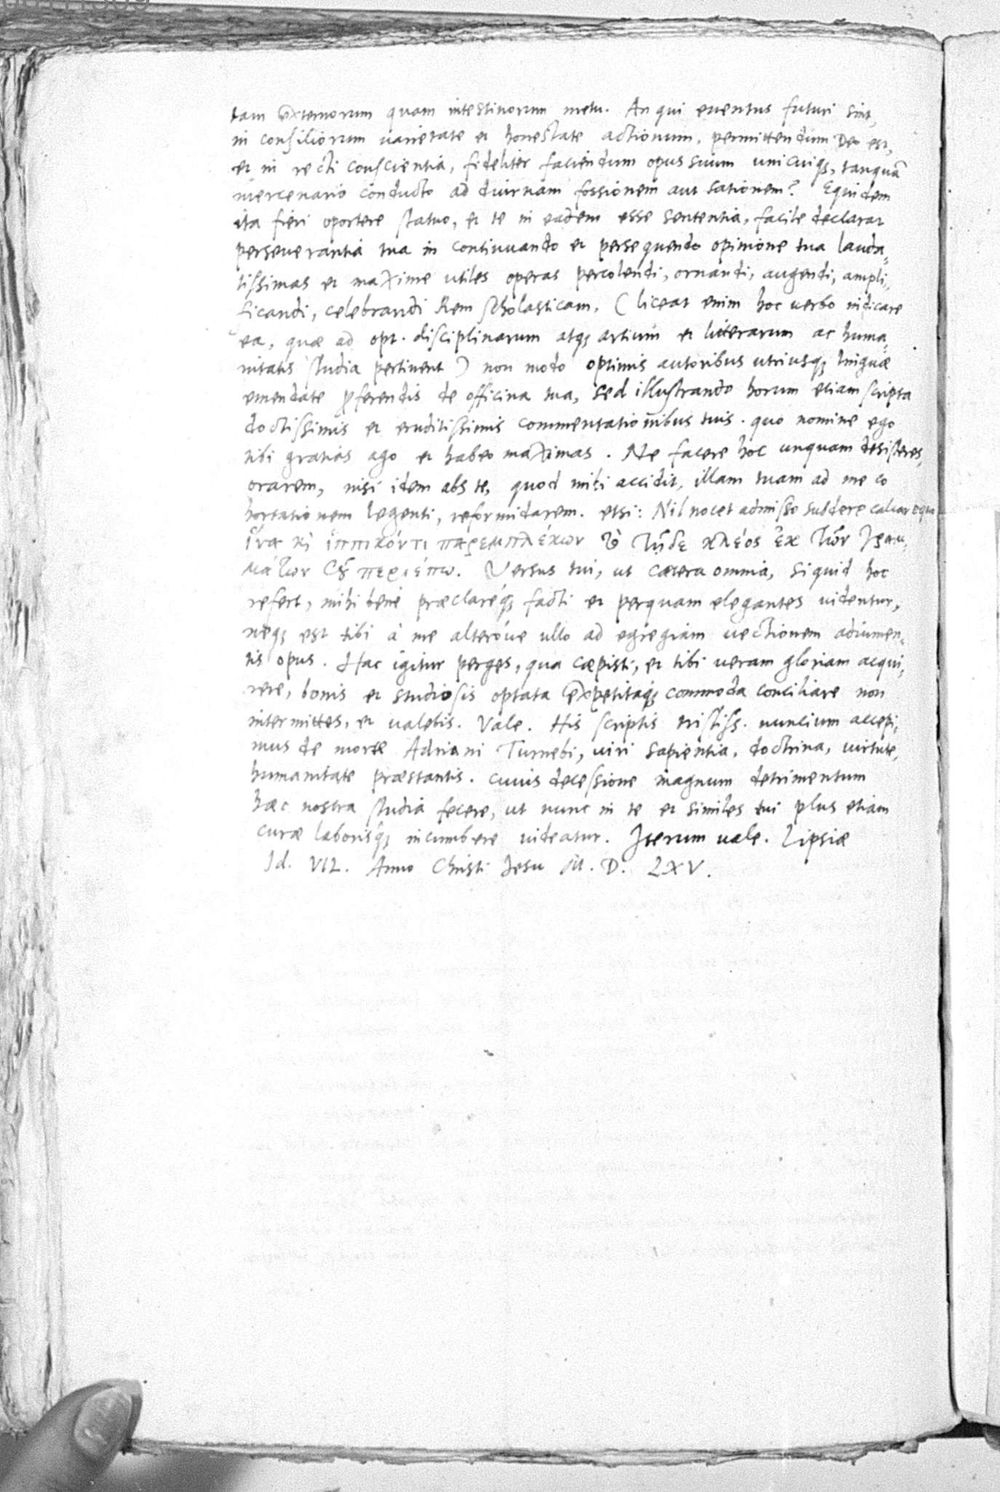 tam externorum quam intestinorum metu. An qui eventus futuri sint,
in consiliorum varietate et honestate actionum, permittendum Deo est,
et in recti conscientia, fideliter faciendum opus suum unicuiq;, tanquā
mercenario conducto ad diurnam fossionem aut sationem? Equidem
ita fieri oportere statuo, et te in eadem esse sententia, facile declarat
perseverantia tua in continuando et persequendo opinione tua lauda-
tissimas et maxime utiles operas percolendi, ornandi, augendi, ampli-
ficandi, celebrandi Rem scholasticam. (liceat enim hoc verbo indicare
ea, quæ ad opt. disciplinarum atq; artium et litterarum ac huma-
nitatis studia pertinent) non modo optimis autoribus utriusq; linguæ
emendate proferendis de officina tua, sed illustrando horum etiam scripta
doctissimis et eruditissimis commentationibus tuis. quo nomine ego
tibi gratias ago et habeo maximas. Ne facere hoc unquam desisteres,
orarem, nisi idem abs te, quod mihi accidit, illam tuam ad me co
hortationem legenti, reformidarem. etsi: Nil nocet admisso subdere calcar equo
ἵνα κὶ ἱππικόν τι παρεμπλέκων τῶ τῆδε κλέος ἐκ τῶν γραμ-
μάτων σȣ περιέπω. Versus tui, ut cætera omnia, si quid hoc
refert, mihi bene præclareq; facti et perquam elegantes videntur,
neq; est tibi à me alterove ullo ad egregiam vectionem adiumen-
tis opus. Hac igitur perges, qua cœpisti, et tibi veram gloriam acqui-
rere, bonis et studiosis optata expetitaq; commoda conciliare non
intermittes, et valebis. Vale. His scriptis tristiss. nuncium accepi-
mus de morte Adriani Turnebi, viri sapientia, doctrina, virtute,
humanitate præstantis. cuius decessione magnum detrimentum
hæc nostra studia fecere, ut nunc in te et similes tui plus etiam
curæ laborisq; incumbere videatur. Iterum vale. Lipsiæ
Id. VII. Anno Christi Jesu M. D. LXV.